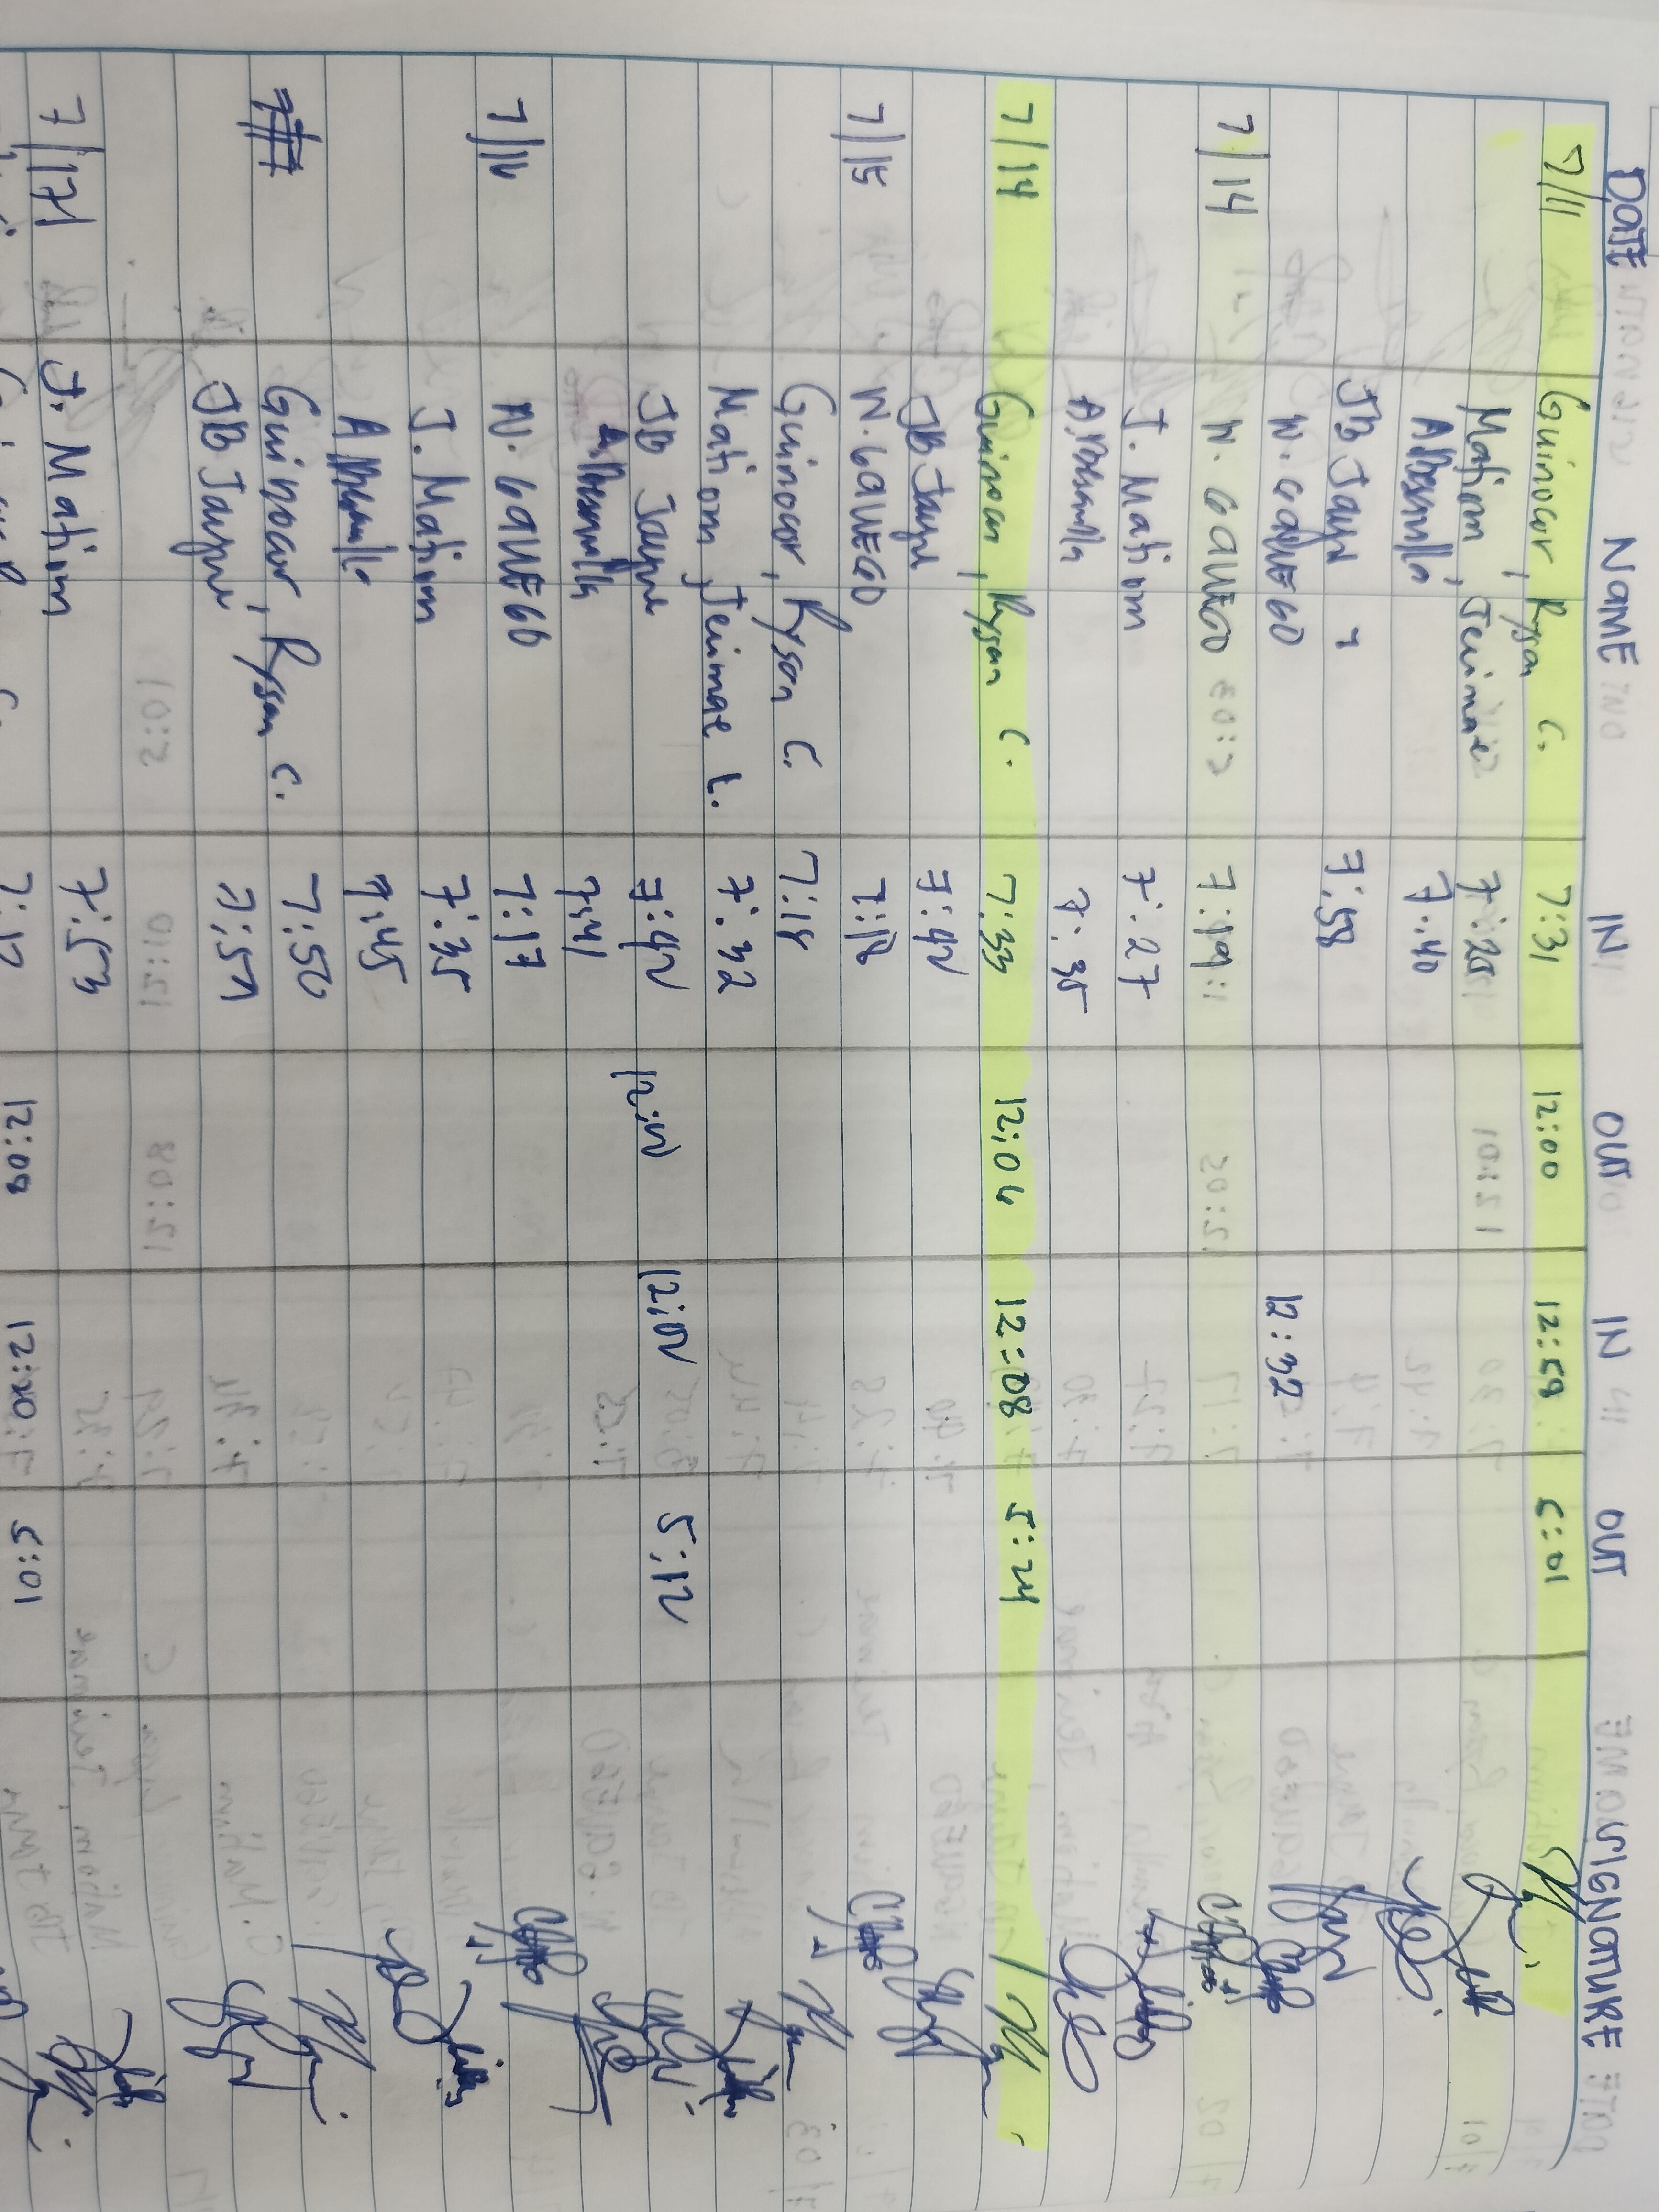 DATE NAME IN OUT IN OUT SIGNATURE
7/11 Guinocor, Rysan C. 7:31 12:00 12:59 5:01
Matiom, Jeimae 7:25
7:40
JB Jayne 7:58
N. GALLEGO 12:32
7/14 N. GALLEGO 7:19
J. Matiom 7:27
7:35
7/14 Guinocor, Rysan C. 7:33 12:06 12:08 5:24
JB Jayne 7:42
7/15 N. GALLEGO 7:18
Guinocor, Rysan C. 7:18
Matiom, Jeimae L. 7:32
JB Jayne 7:42 12:01 12:02 5:12
7:41
7/16 N. GALLEGO 7:17
J. Matiom 7:35
7:45
Guinocor, Rysan C. 7:50
JB Jayne 7:59
7/17 J. Matiom 7:53
12:08 5:01